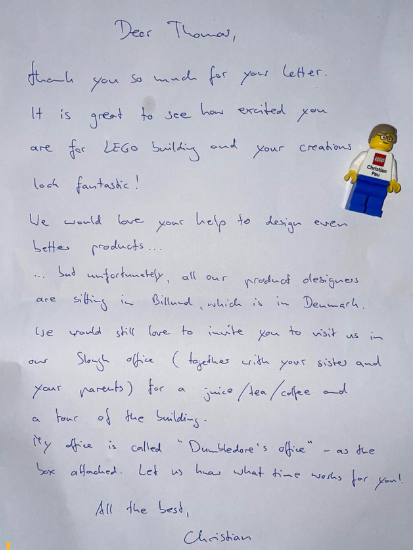 Dear Thomas,
thank you so much for your letter.
It is great to see how excited you
are for LEGO building and your creations
look fantastic!
LEGO
Christian
Pau
We would love your help to design even
better products...
... but unfortunately, all our product designers
are sitting in Billund, which is in Denmark.
We would still love to invite you to visit us in
our Slough office (together with your sister and
your parents) for a juice/tea/coffee and
a tour of the building.
My office is called "Dumbledore's office" - as the
box attached. Let us know what time works for you!
All the best,
Christian